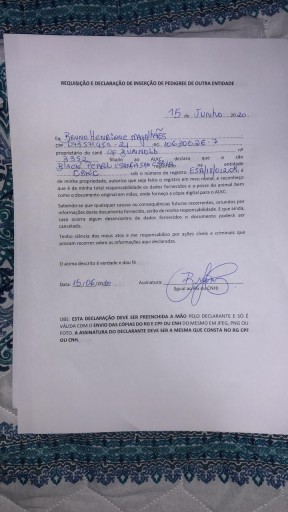 REQUISIÇÃO E DECLARAÇÃO DE INSERÇÃO DE PEDIGREE DE OUTRA ENTIDADE
15 de Junho 2020
Eu, BRUNO HENRIQUE MAGALHÃES
proprietário do canil OF nº
3352 filiado ao declara que o cão
BLACK entidade
CBKC sob o número de registro
de minha propriedade, autorizo que seja feito o registro em meu nome, e reconheço
que é de minha total responsabilidade os dados fornecidos e a posse do animal bem
como o documento original em mãos, onde forneço a cópia digital para o
Sabendo-se que qualquer causas ou consequências futuras recorrentes, oriundos por
informações deste documento fornecidos, serão de minha responsabilidade. E que ainda,
caso ocorra algum desencontro de dados fornecidos o documento poderá ser
cancelado.
Tenho ciência dos meus atos e me responsabilizo por ações cíveis e criminais que
possam recorrer sobre as informações aqui declaradas.
O acima descrito é verdade e dou fé.
Data: 15/06/2020 Assinatura:
(Igual ao RG ou CNH)
OBS: ESTA DECLARAÇÃO DEVE SER PREENCHIDA A MÃO PELO DECLARANTE E SÓ É
VÁLIDA COM O ENVIO DAS CÓPIAS DO RG E CPF OU CNH DO MESMO EM JPEG, PNG OU
FOTO. A ASSINATURA DO DECLARANTE DEVE SER A MESMA QUE CONSTA NO RG CPF
OU CNH.